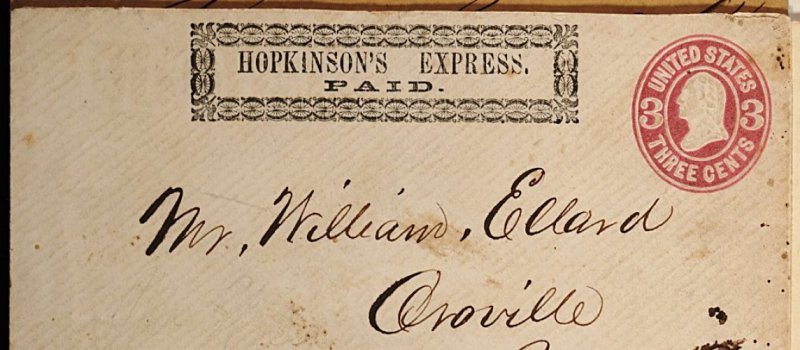 HOPKINSON'S EXPRESS.
PAID.
UNITED STATES
3 3
THREE CENTS
Mr. William, Ellard
Oroville